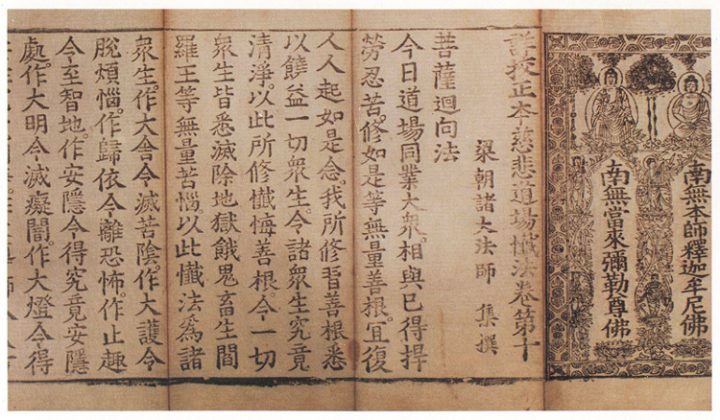 南無本師釋迦牟尼佛
南無當來彌勒尊佛
詳校正夲慈悲道場懺法卷第十
梁朝諸大法師 集撰
菩薩迴向法
今日道場同業大衆。相與已得捍
勞忍苦。修如是等無量善根。宜復
人人起如是念我所修習善根悉
以饒益一切衆生。令諸衆生究竟
清淨。以此所修懺悔善根。令一切
衆生皆悉滅除地獄餓鬼畜生閻
羅王等無量苦惱。以此懺法爲諸
衆生。作大舍令滅苦陰。作大護令
脫煩惱。作歸依令離恐怖。作止趣
令至智地。作安隱令得究竟安隱
處。作大明令滅癡闇。作大燈令得